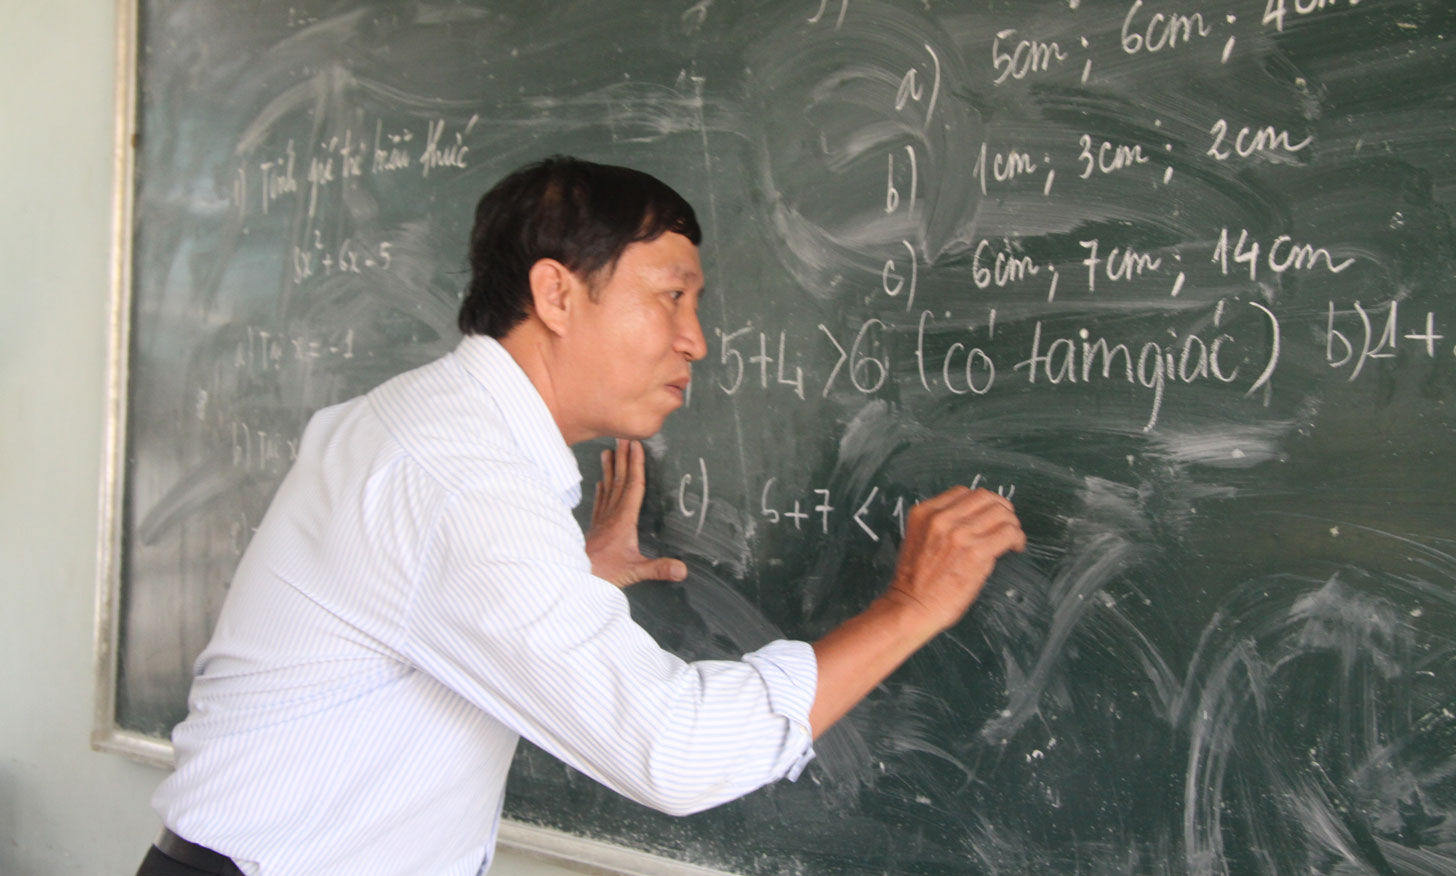 1) Tính giá trị biểu thức
x² + 6x - 5
a) Tại x = -1
b) Tại x
a) 5cm; 6cm; 4cm
b) 1cm; 3cm; 2cm
c) 6cm; 7cm; 14cm
5+4 > 6 (có tam giác) b) 1+
c) 6+7 < 1